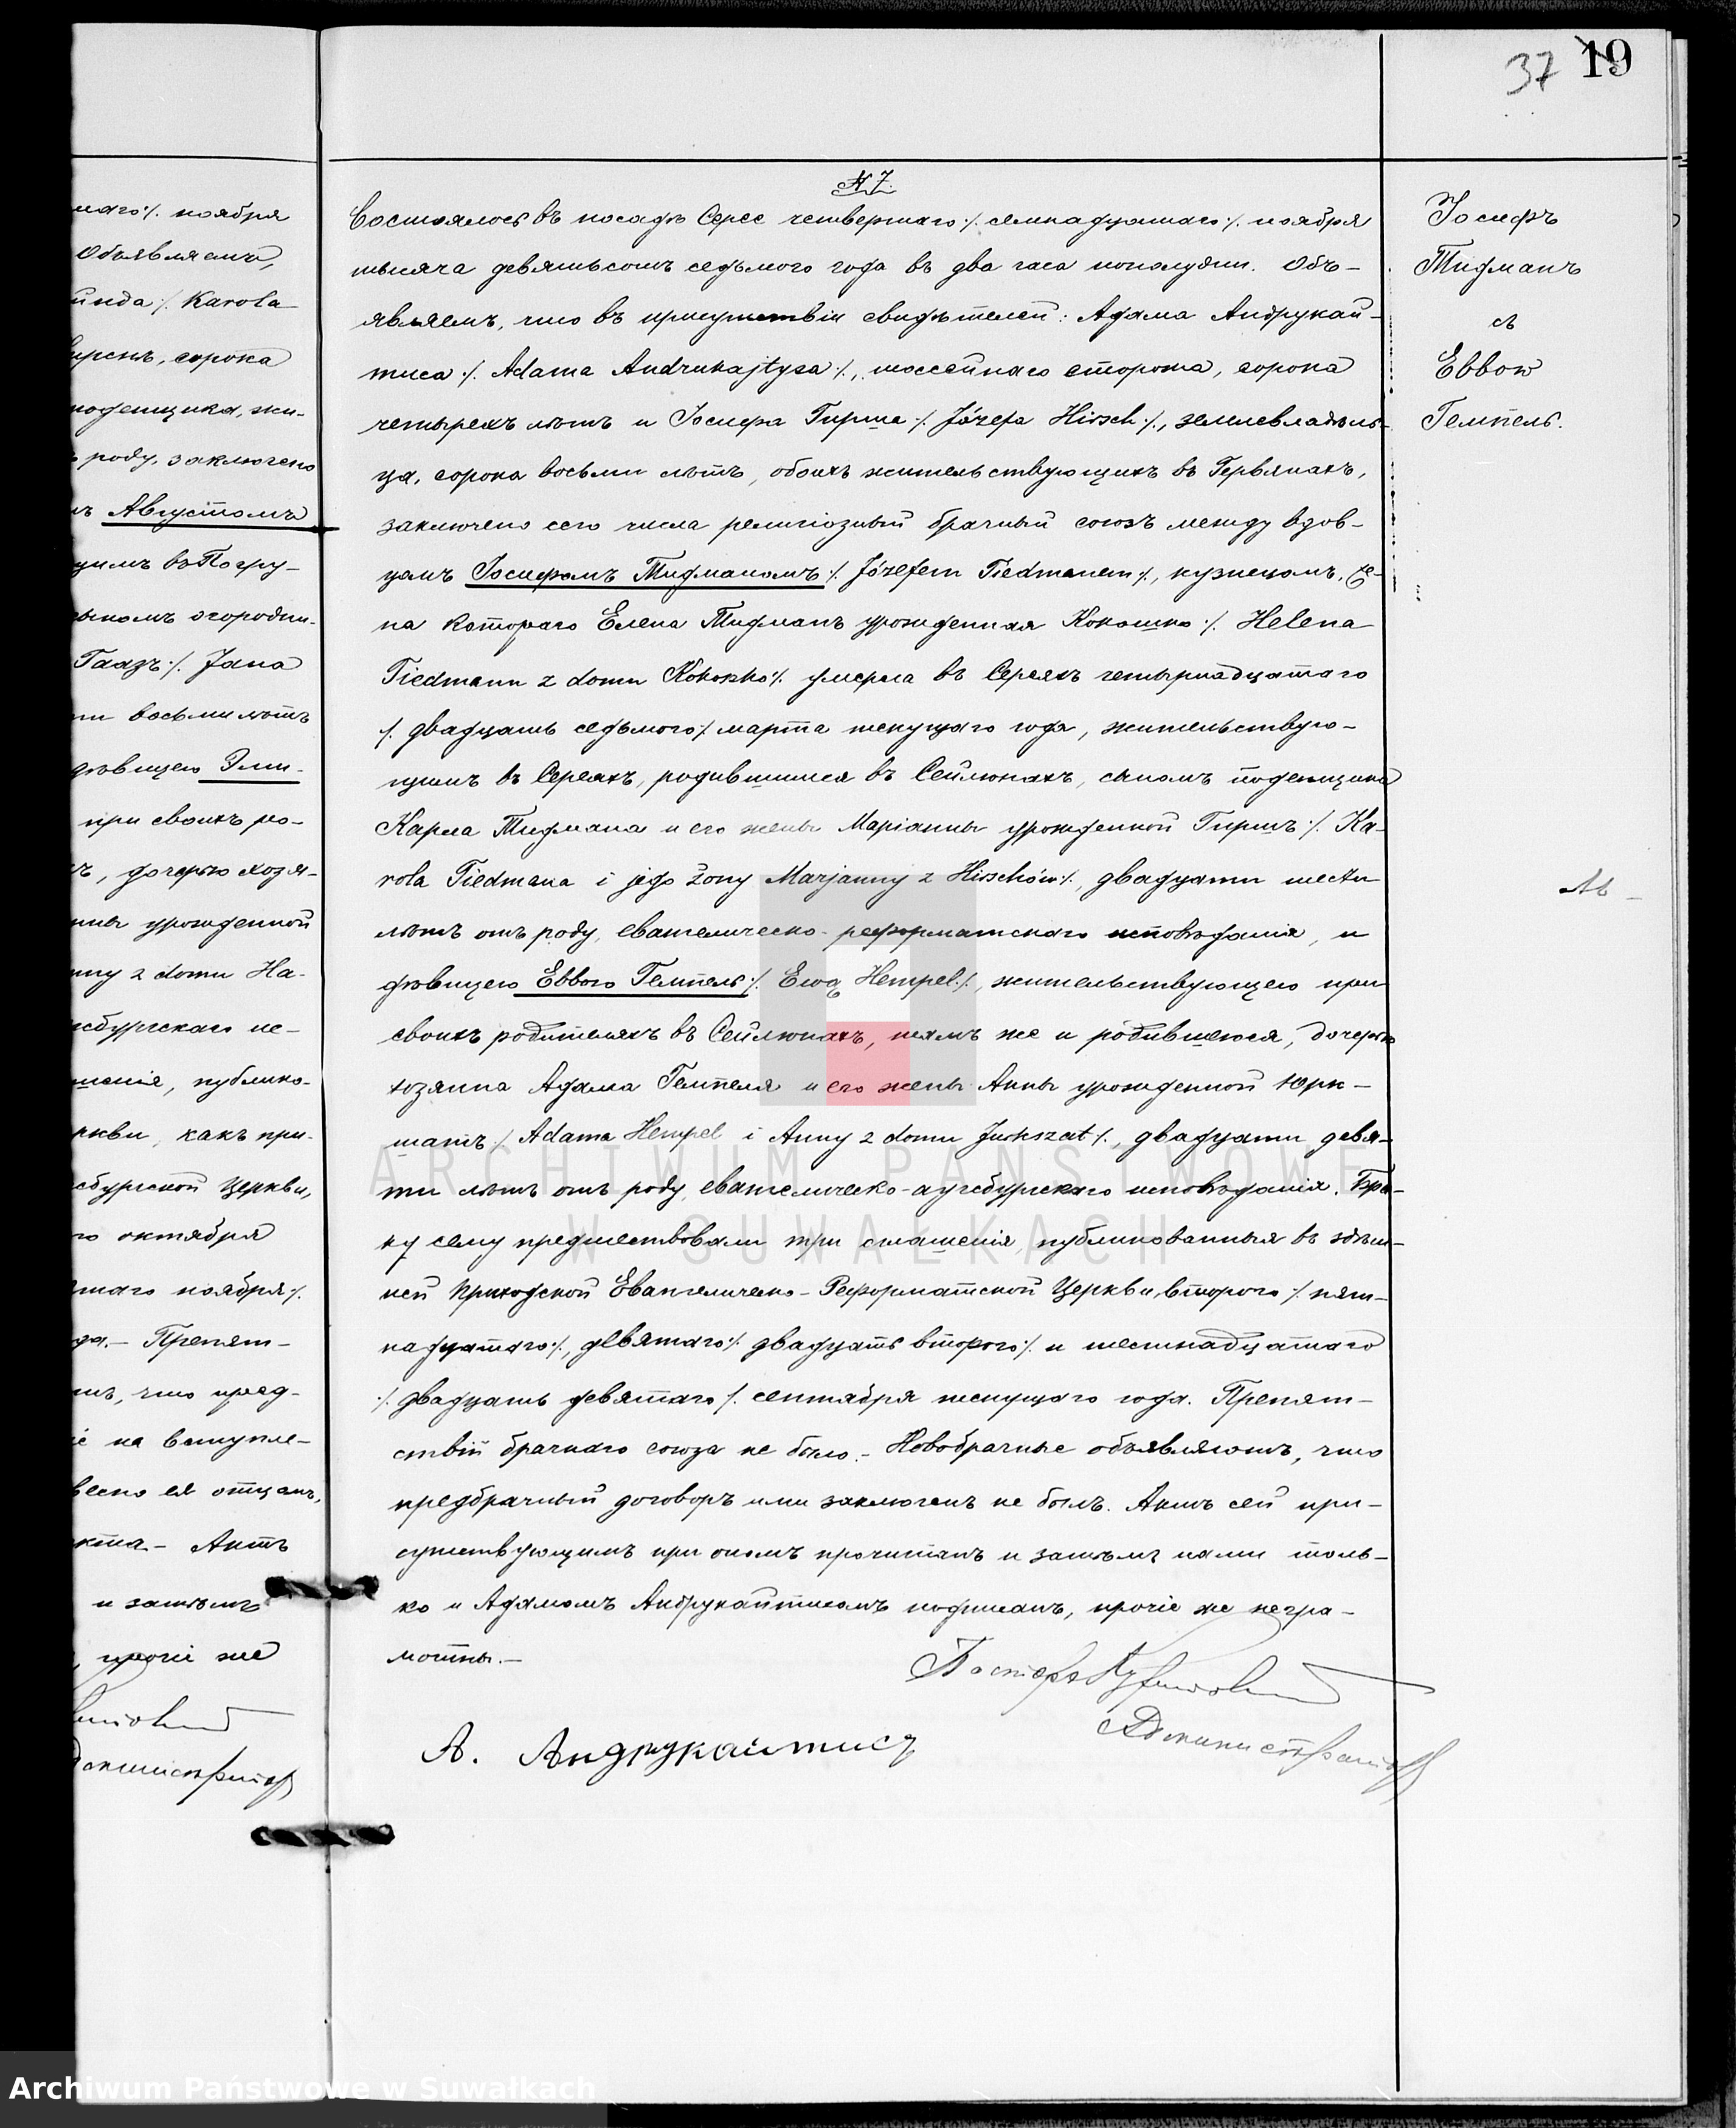 37 19
маго ∙/. ноября
Объявляемъ,
/. Karola
сорока
поденщика, жи-
роду, заключено
Августомъ
въ Погру-
огородни-
Гаазъ ∙/. Jana
восьми лѣтъ
дѣвицею Эми-
при своихъ ро-
, дочерью хозя-
урожденной
z domu Ha-
публико-
какъ при-
Церкви,
октября
ноября /.
да.– Препят-
что пред-
на вступле-
ея отцамъ,
– Актъ
и затѣмъ
, прочіе же
№ 7.
Состоялось въ посадѣ Сереѣ четвертаго ∙/. семнадцатаго ∙/. ноября
тысяча девятьсотъ седьмого года въ два часа пополудни. Объ-
являемъ, что въ присутствіи свидѣтелей: Адама Андрукай-
тиса ∙/. Adama Andrukajtysa ∙/., шоссейнаго сторожа, сорока
четырехъ лѣтъ и Іосифа Гирша ∙/. Józefa Hirsch ∙/., землевладѣль-
ца, сорока восьми лѣтъ, обоихъ жительствующихъ въ Гервянахъ,
заключено сего числа религіозный брачный союзъ между вдов-
цомъ Іосифомъ Тидманомъ ∙/. Józefem Tiedmanem ∙/., кузнецомъ, же-
на котораго Елена Тидманъ урожденная Кокошко ∙/. Helena
Tiedmann z domu Kokoszko ∙/. умерла въ Сереяхъ четырнадцатаго
∙/. двадцать седьмого ∙/. марта текущаго года, жительствую-
щимъ въ Сереяхъ, родившимся въ Сейлюнахъ, сыномъ поденщика
Карла Тидмана и его жены Маріанны урожденной Гиршъ ∙/. Ka-
rola Tiedmana i jego żony Marjanny z Hirschów ∙/., двадцати шести
лѣтъ отъ роду, евангелическо-реформатскаго исповѣданія, и
дѣвицею Еввою Гемпель ∙/. Ewą Hempel ∙/., жительствующею при
своихъ родителяхъ въ Сейлюнахъ, тамъ же и родившеюся, дочерью
хозяина Адама Гемпеля и его жены Анны урожденной Юрк-
шатъ ∙/. Adama Hempel i Anny z domu Jurkszat ∙/., двадцати девя-
ти лѣтъ отъ роду, евангелическо-аугсбургскаго исповѣданія. Бра-
ку сему предшествовали три оглашенія, публикованныя въ здѣш-
ней Приходской Евангелическо-Реформатской Церкви, второго ∙/. пят-
надцатаго ∙/., девятаго ∙/. двадцать второго ∙/. и шестнадцатаго
∙/. двадцать девятаго ∙/. сентября текущаго года. Препят-
ствій брачнаго союза не было.– Новобрачные объявляютъ, что
предбрачный договоръ ими заключенъ не былъ. Актъ сей при-
сутствующимъ при ономъ прочитанъ и затѣмъ нами толь-
ко и Адамомъ Андрукайтисомъ подписанъ, прочіе же негра-
мотны.–
Пасторъ
Администраторъ
А. Андрукайтисъ
Іосифъ
Тидманъ
съ
Еввою
Гемпель.
ARCHIWUM PAŃSTWOWE
W SUWAŁKACH
Archiwum Państwowe w Suwałkach